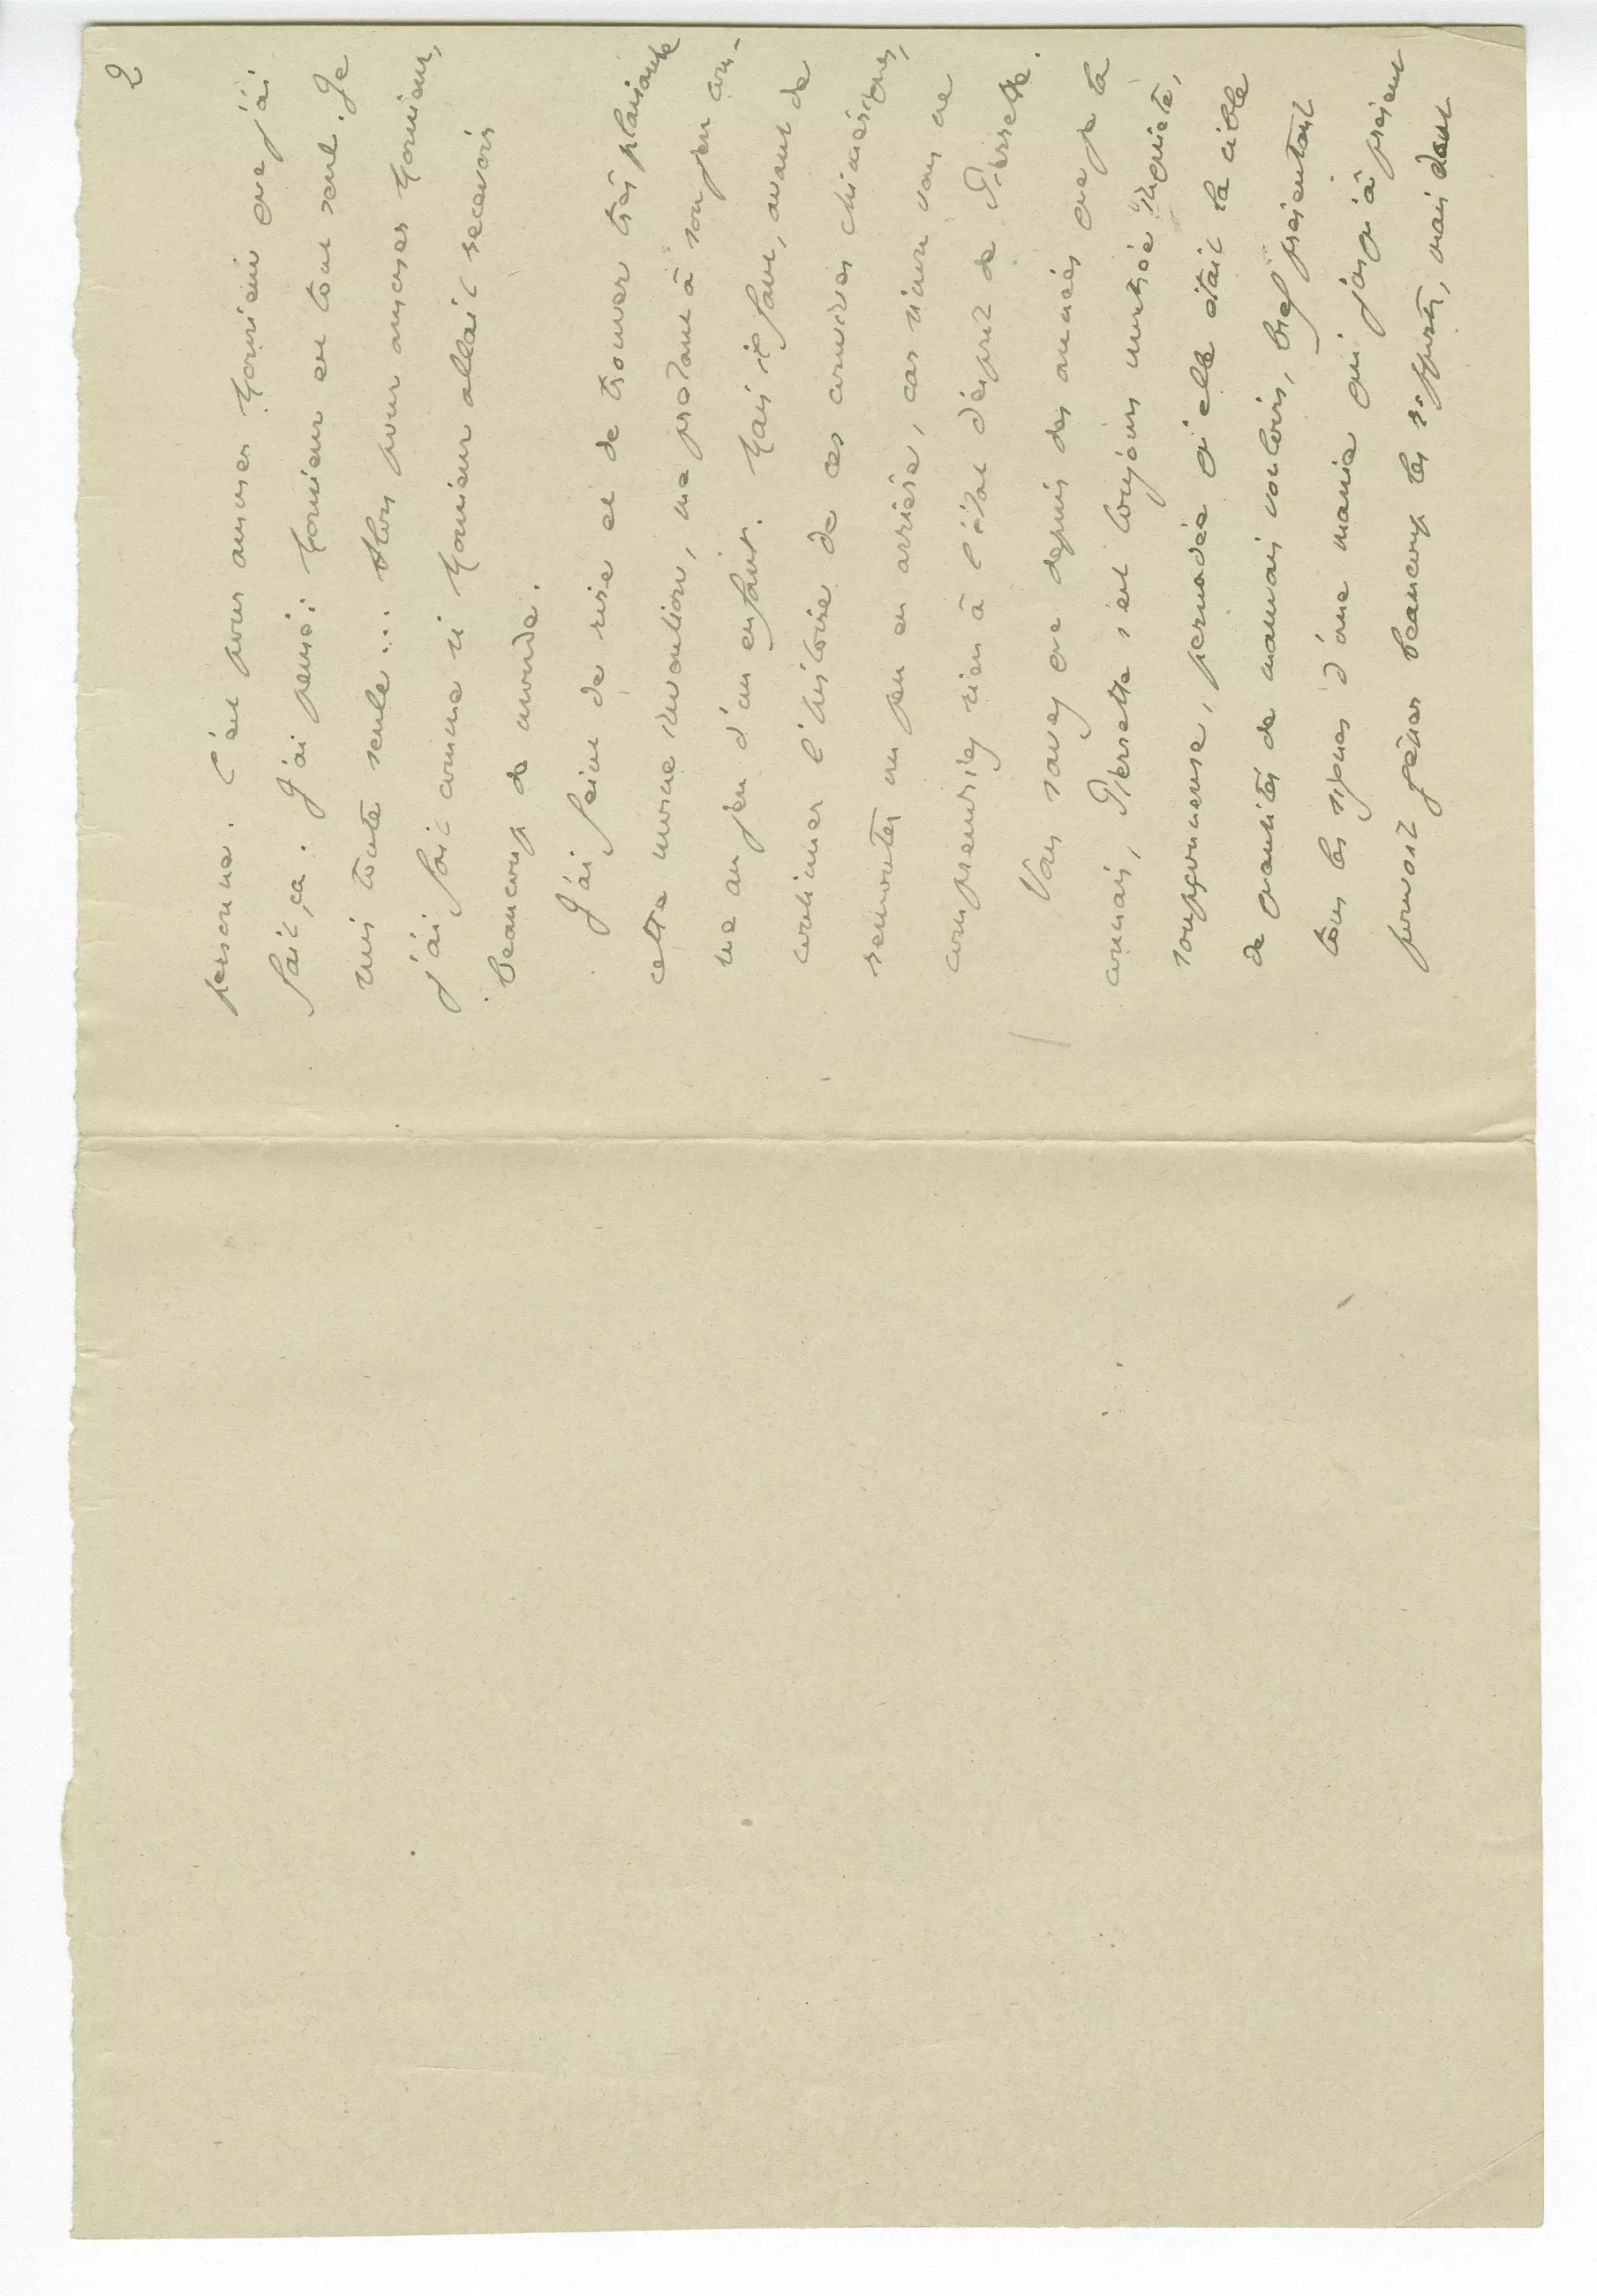 2
personne. C'est pour amuser Monsieur que j'ai
fait ça. J'ai pensé: Monsieur est tout seul. Je
suis toute seule... Alors pour amuser Monsieur,
j'ai fait comme si Monsieur allait recevoir
beaucoup de monde.
J'ai feint de rire et de trouver très plaisante
cette morne invention, me prêtant à son jeu com-
me au jeu d'un enfant. Mais il faut, avant de
continuer l'histoire de ces convives chimériques,
remonter un peu en arrière, car sinon vous ne
comprendriez rien à l'état d'esprit de Pierrette.
Vous savez que depuis des années que je la
connais, Pierrette s'est toujours montrée inquiète,
soupçonneuse, persuadée qu'elle était la cible
de quantités de mauvais vouloirs, bref présentant
tous les signes d'une manie qui jusqu'à présent
pouvait gêner beaucoup les rapports, mais dont